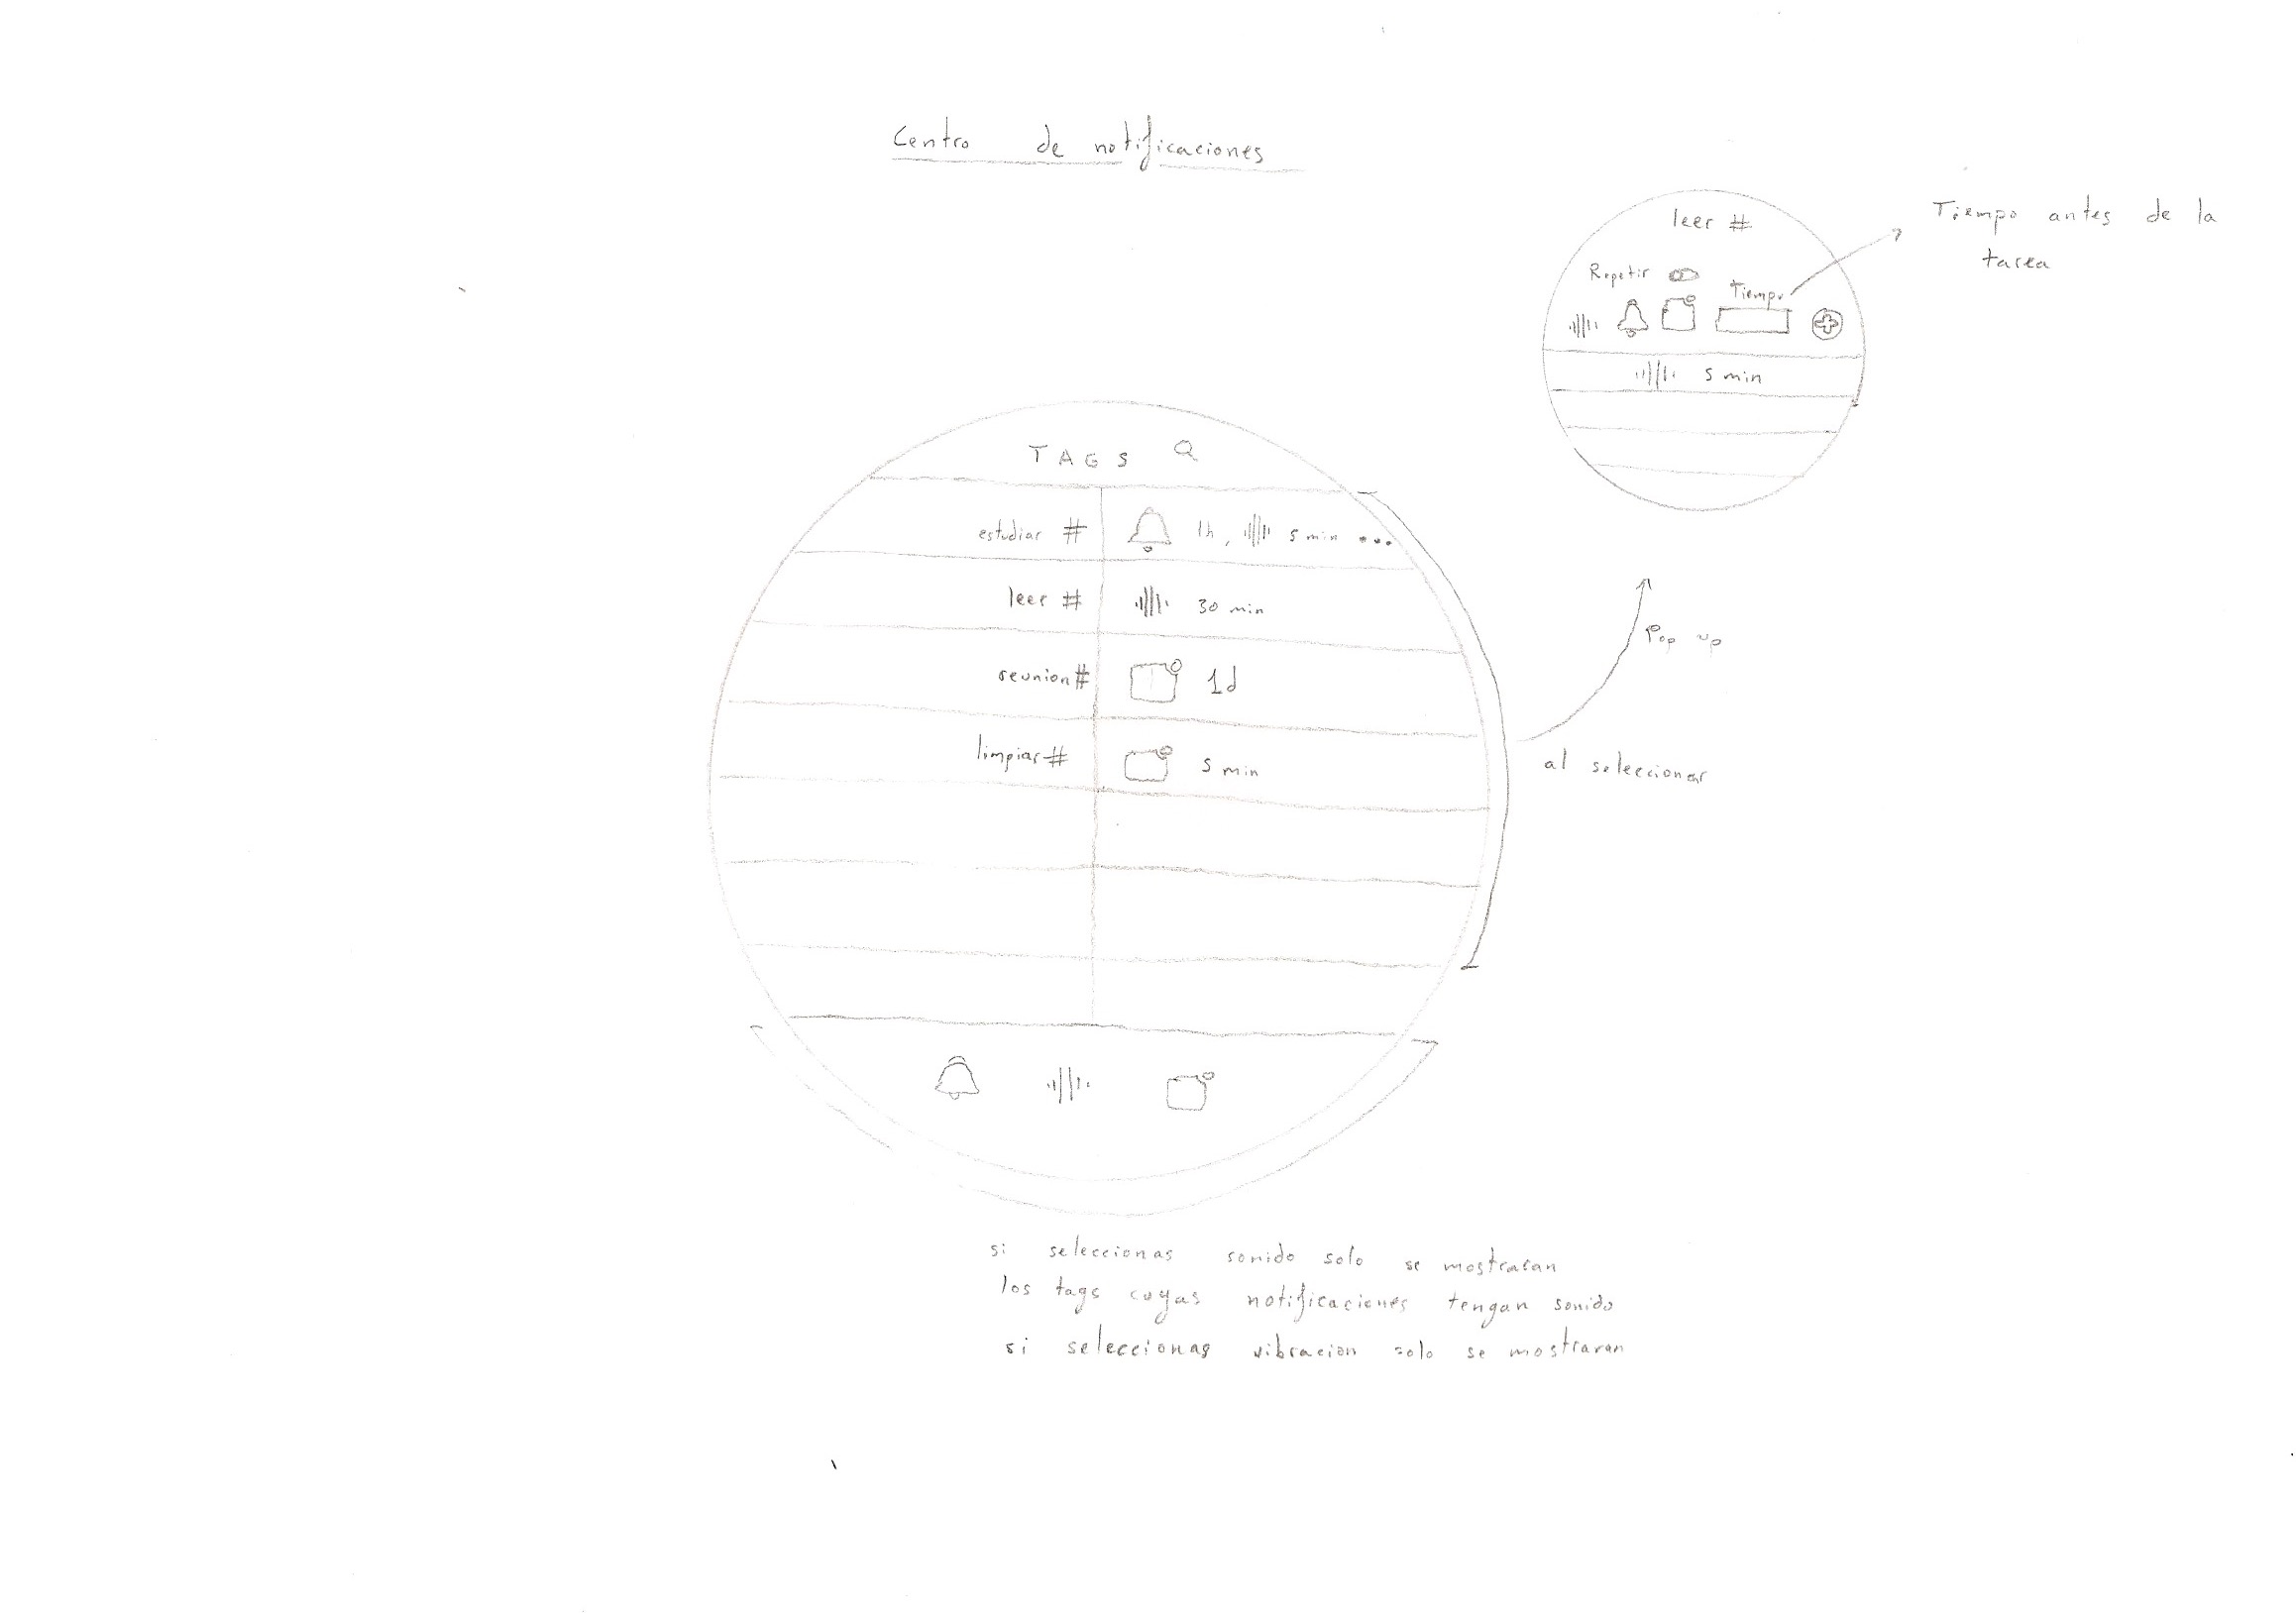 Centro de notificaciones
leer #
Tiempo antes de la
tarea
Repetir
Tiempo
5 min
TAGS
estudiar # 1h, 5 min ...
leer # 30 min
reunion # 1d
limpiar # 5 min
Pop up
al seleccionar
si seleccionas sonido solo se mostraran
los tags cuyas notificaciones tengan sonido
si seleccionas vibracion solo se mostraran